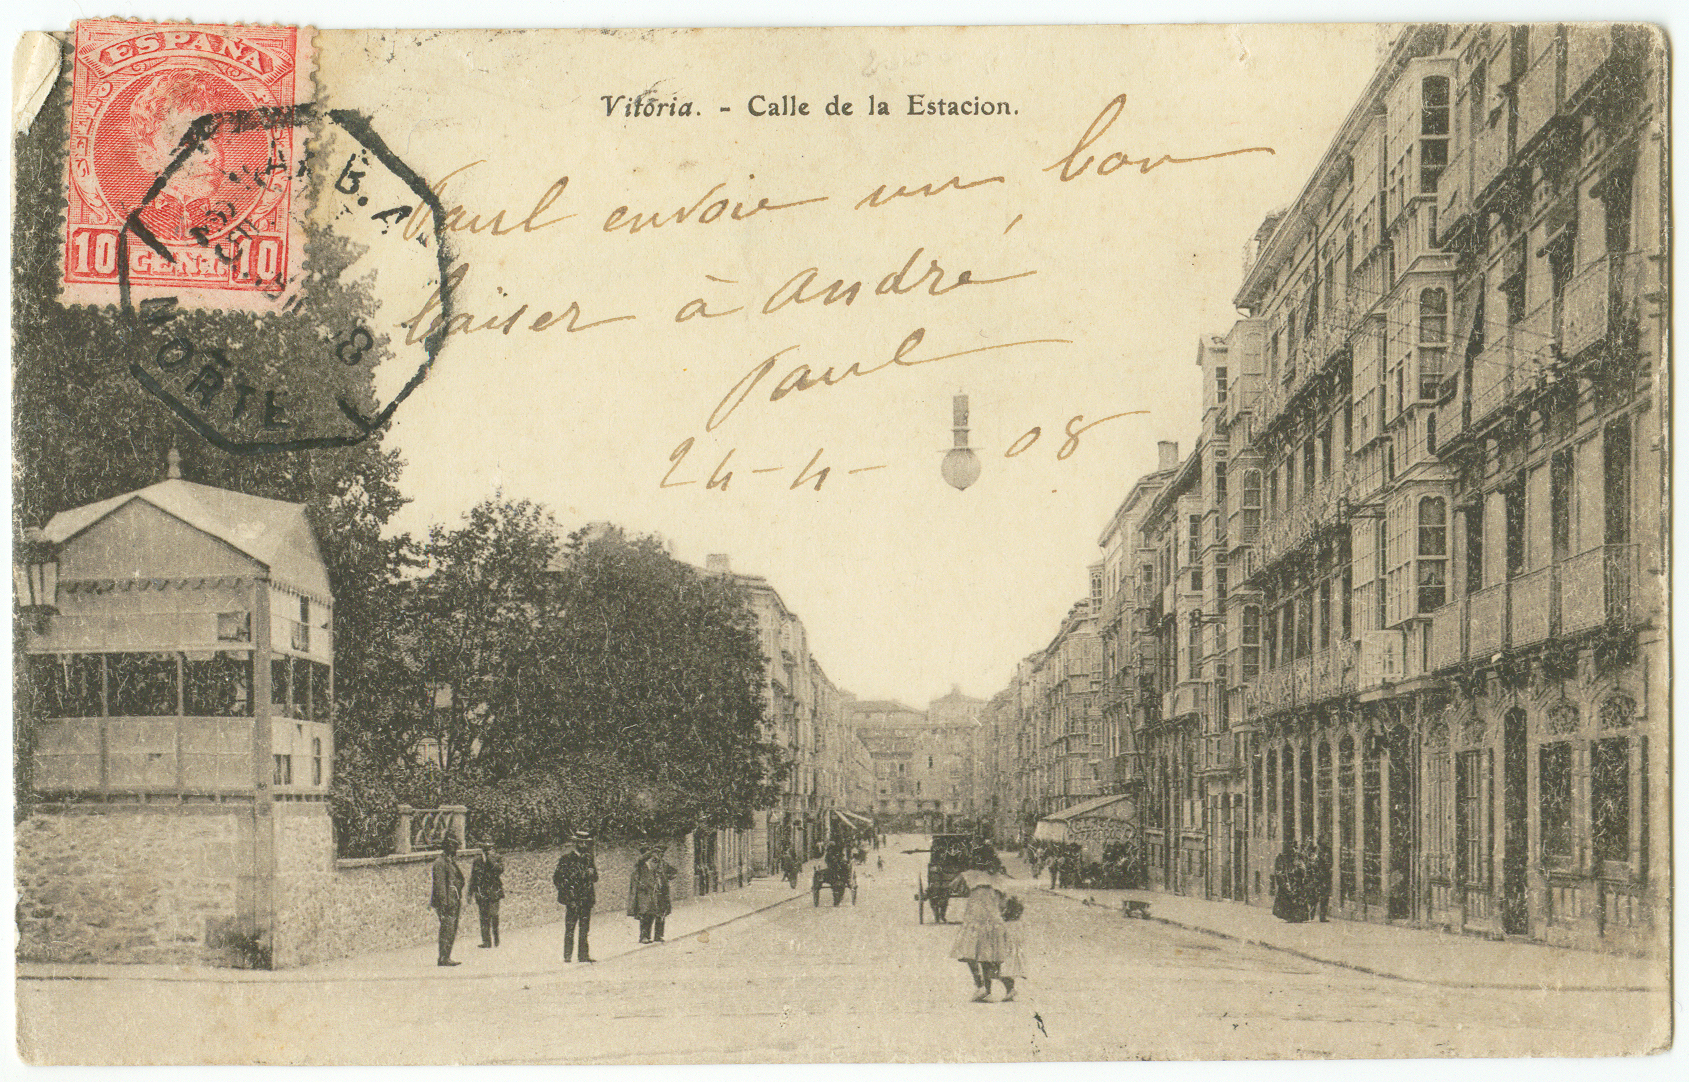 ESPAÑA
10 CENT. 10
Vitoria. - Calle de la Estacion.
Paul envoie un bon
baiser à André
Paul
24-4-08
NORTE